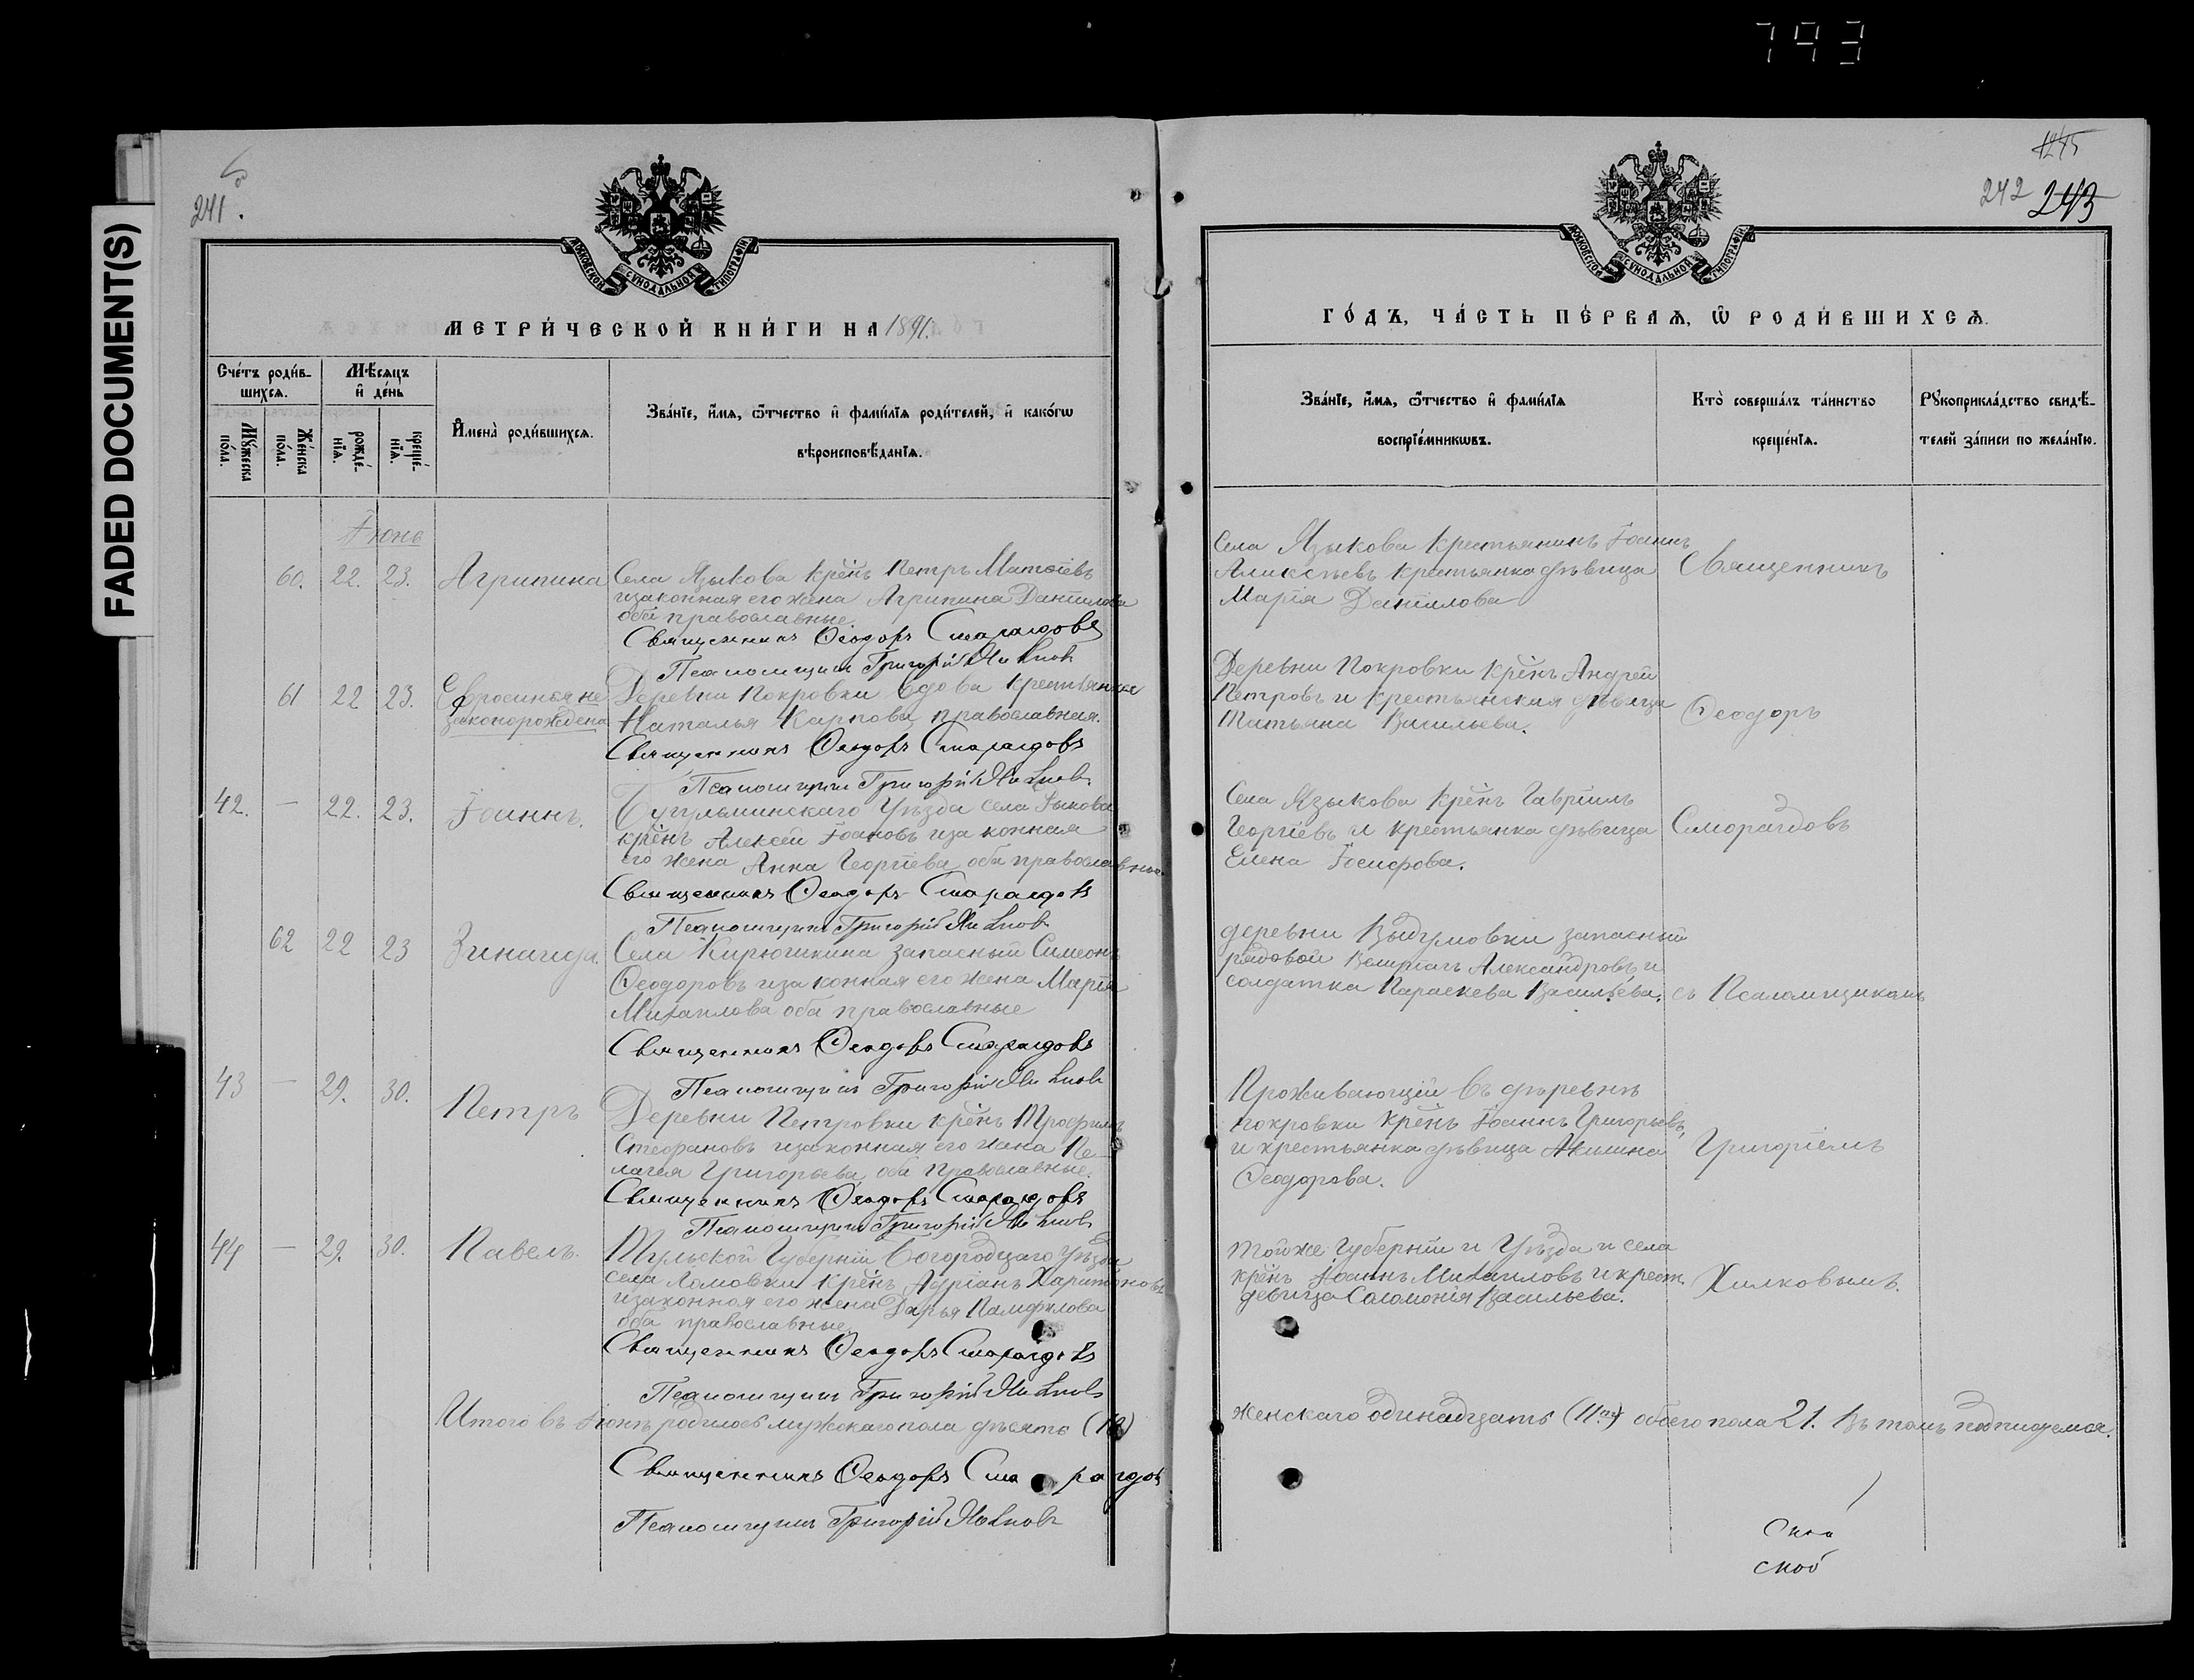 793
FADED DOCUMENT(S)
241.
МОСКОВСКОЙ СѴНОДАЛЬНОЙ ТИПОГРАФІИ
МЕТРИ́ЧЕСКОЙ КНИ́ГИ НА 1891.
Сче́тъ роди́в-
шихсѧ.
Мѣ́сѧцъ
и҆ де́нь
Мꙋ́жеска
по́ла.
Же́нска
по́ла.
рожде́-
нїѧ.
креще́-
нїѧ.
И҆мена̀ роди́вшихсѧ.
Зва́нїе, и҆́мѧ, ѻ҆́тчество и҆ фами́лїѧ роди́телей, и҆ како́гѡ
вѣроисповѣ́данїѧ.
Іюнь
60. 22. 23. Агрипина Села Языкова крѣнъ Петръ Матѳіевъ
изаконная его жена Агрипина Даніилова
оба православные.
Священникъ Ѳеодоръ Смарагдовъ
Псаломщикъ Григорій Хилковъ
61 22 23. Евросинья не Деревни Покровки вдова крестьянка
законорождена Наталья Карпова православная.
Священникъ Ѳеодоръ Смарагдовъ
Псаломщикъ Григорій Хилковъ
42. — 22. 23. Іоаннъ. Бугульминскаго Уѣзда села
крѣнъ Алексей Іоановъ изаконная
его жена Анна Георгіева оба православные.
Священникъ Ѳеодоръ Смарагдовъ
Псаломщикъ Григорій Хилковъ
62 22 23 Зинаида. Села Кирюшкина запасный Симеонъ
Ѳеодоровъ изаконная его жена Марія
Михаилова оба православные
Священникъ Ѳеодоръ Смарагдовъ
Псаломщикъ Григорій Хилковъ
43 — 29. 30. Петръ Деревни Петровки крѣнъ Трофимъ
Стефановъ изаконная его жена Пе-
лагея Григорьева оба православные.
Священникъ Ѳеодоръ Смарагдовъ
Псаломщикъ Григорій Хилковъ
44 — 29. 30. Павелъ. Тульской Губерніи Богородцаго Уѣзда
села Ломовки крѣнъ Адріанъ Харитоновъ
изаконная его жена Дарья Памфилова
оба православные.
Священникъ Ѳеодоръ Смарагдовъ
Псаломщикъ Григорій Хилковъ
Итого въ Іюнѣ родилось мужскаго пола десять (10)
Священникъ Ѳеодоръ Смарагдовъ
Псаломщикъ Григорій Хилковъ
242 243
МОСКОВСКОЙ СѴНОДАЛЬНОЙ ТИПОГРАФІИ
ГО́ДЪ, ЧА́СТЬ ПЕ́РВАѦ, Ѽ РОДИ́ВШИХСѦ.
Зва́нїе, и҆́мѧ, ѻ҆́тчество и҆ фами́лїѧ
воспрїе́мникѡвъ.
Кто̀ соверша́лъ та́инство
креще́нїѧ.
Рꙋкоприкла́дство свидѣ́-
телей за́писи по жела́нїю.
Села Языкова крестьянинъ Іоаннъ
Аликсѣевъ крестьянка дѣвица
Марія Даніилова
Священникъ
Деревни Покровки крѣнъ Андрей
Петровъ и крестьянская дѣвица
Татьяна Васильева.
Ѳеодоръ
Села Языкова крѣнъ Гавріилъ
Георгіевъ и крестьянка дѣвица
Елена Іосифова.
Сморагдовъ
деревни Выдумовки запасный
рядовой Александровъ и
солдатка Параскева Васильева.
съ Псаломщикомъ
Проживающій въ дѣревнѣ
покровки крѣнъ Іоаннъ Григорьевъ
и крестьянка дѣвица Акилина
Ѳеодорова.
Григоріемъ
тойже Губерніи и Уѣзда и села
крѣнъ Іоаннъ Михаиловъ и крест.
девица Соломонія Васильева.
Хилковымъ.
женскаго одинадцать (11) обоего пола 21. Въ томъ подписуемся.